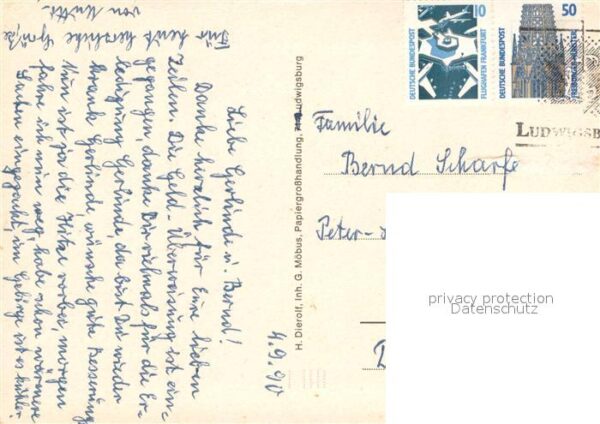 4.9.90
Liebe Gerlinde u. Bernd!
Danke herzlich für Eure lieben
Zeilen. Die Geld-Überweisung ist ein-
gegangen, danke Dir vielmals für die Er-
ledigung Gerlinde, da bist Du wieder
krank Gerlinde, wünsche gute Besserung
Nun ist ja die Hitze vorbei, morgen
fahre ich nun weg, habe schon wärmere
Sachen eingepackt, im Gebirge ist es kühler.
Für heute herzliche Grüße
von Mutti.
H. Dierolf, Inh. G. Möbus, Papiergroßhandlung, Ludwigsburg
10
DEUTSCHE BUNDESPOST
FLUGHAFEN FRANKFURT
50
DEUTSCHE BUNDESPOST
FREIBURGER MÜNSTER
LUDWIGSB
Familie
Bernd Scharfe
Peter-
privacy protection
Datenschutz